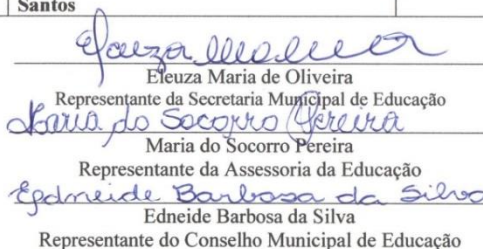 Santos
Eleuza Maria de Oliveira
Representante da Secretaria Municipal de Educação
Maria do Socorro Pereira
Maria do Socorro Pereira
Representante da Assessoria da Educação
Edneide Barbosa da Silva
Edneide Barbosa da Silva
Representante do Conselho Municipal de Educação